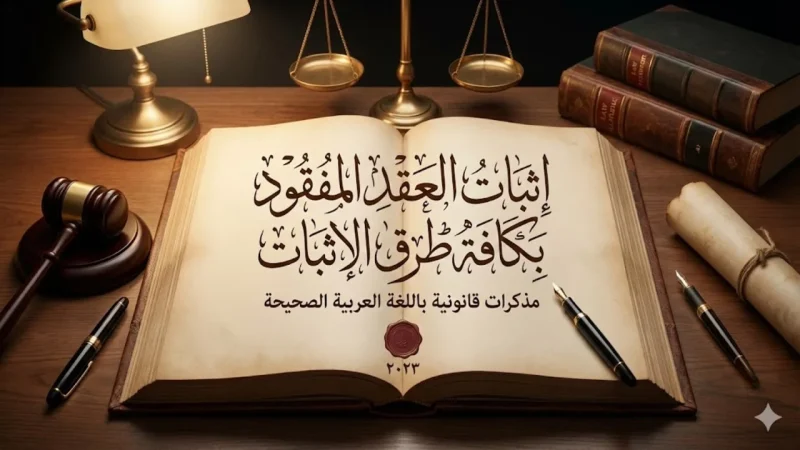 إِثبَاتُ العَقدِ المَفُقُودِ
بِكَافَةُ طُرقِ الإثبَات
مذكرات قانونية باللغة العربية الصحيحة
٢٠٢٣